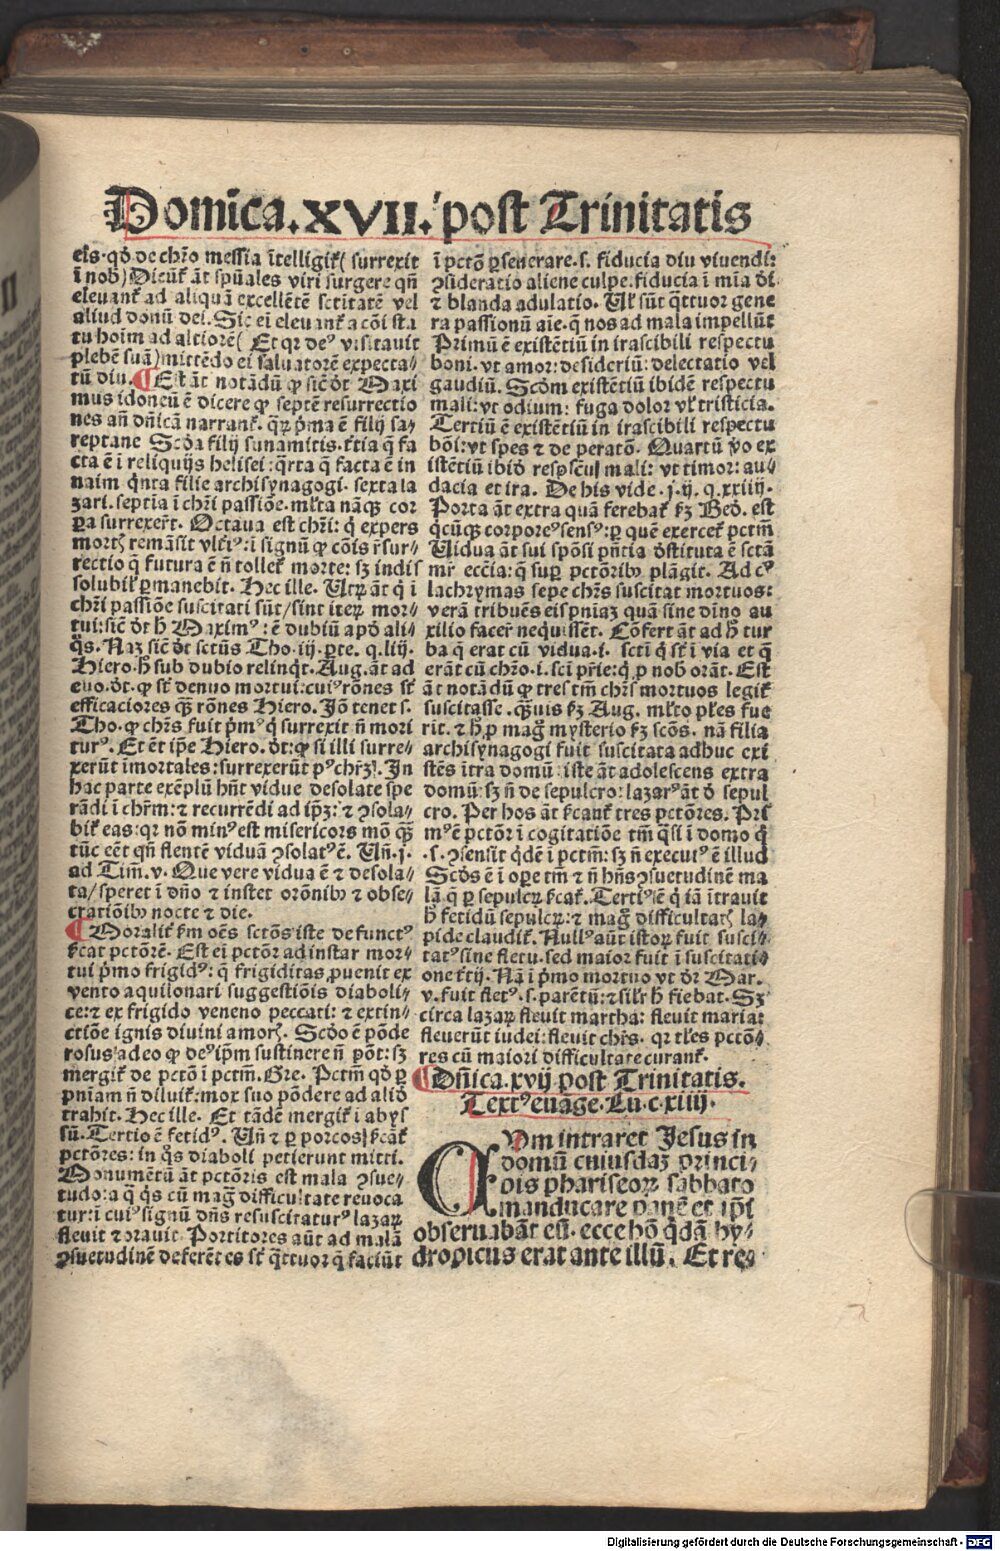 Domīca.XVII. post Trinitatis
eis·qđ de chr̄o messia ītelligit̄( surrexit
ī nob̄) Dicūt āt spūales viri surgere qn̄
eleuant̄ ad aliquā excellētē sctītatē vel
aliud donū dei. Sic ei eleuant̄ a cōi sta
tu hoīm ad altiorē( Et qr deꝰ visitauit
plebē suā) mittēdo ei saluatorē expecta⸗
tū diu. ¶ Est āt notādū ꝙ sic̄ đt Maxi
mus idoneū ē dicere ꝙ septē resurrectio
nes an̄ dn̄icā narrant̄. qꝝ p̄ma ē filij sa⸗
reptane Scđa filij sunamitis. t̄tia q̄ fa
cta ē ī reliquijs helisei: q̄rta q̄ facta ē in
naim q̄nta filie archisynagogi. sexta la
zari. septīa ī chr̄i passiōe. ml̄ta nāqꝫ cor
ꝑa surrexer̄t. Octaua est chr̄i: q̄ expers
mort̄ remāsit vlt̄iꝰ: ī signū ꝙ cōis r̄sur⸗
rectio q̄ futura ē n̄ tollet̄ morte: sꝫ indis
solubil̄ ꝑmanebit. Hec ille. Utꝝ āt q̄ ī
chr̄i passiōe suscitati sūt/sint iteꝝ mor⸗
tui: sic̄ đt h̄ Maximꝰ: ē dubiū apđ ali⸗
q̄s. Naꝫ sic̄ đt sctūs Tho. iij. ꝑte. q. liij.
Hiero. h̄ sub dubio relinq̄t. Aug. āt ad
euo. đt. ꝙ st̄ denuo mortui: cuiꝰ rōnes st̄
efficaciores qꝫ̄ rōnes Hiero. Jō tenet s.
Tho. ꝙ chr̄s fuit p̄mꝰ q̄ surrexit n̄ mori
turꝰ. Et ēt ip̄e Hiero. đt: ꝙ si illi surre⸗
xerūt īmortales: surrexerūt pꝰ chr̄ꝫ. In
hac parte exēplū hn̄t vidue desolate spe
rādi ī chr̄m: ⁊ recurrēdi ad ip̄ꝫ: ⁊ ꝯsola⸗
bit̄ eas: qr nō minꝰ est misericors mō qꝫ̄
tūc eēt qn̄ flentē viduā ꝯsolatꝰ ē. Un̄. j.
ad Tim̄. v. Que vere vidua ē ⁊ desola⸗
ta/speret ī dn̄o ⁊ instet orōnibꝰ ⁊ obse⸗
crationibꝰ nocte ⁊ die.
¶ Moralit̄ ẜm oēs sctōs iste defunctꝰ
ẜcat pctōrē. Est ei pctōr ad instar mor⸗
tui p̄mo frigidꝰ: q̄ frigiditas ꝓuenit ex
vento aquilonari suggestiōis diaboli⸗
ce: ⁊ ex frigido veneno peccati: ⁊ extin⸗
ctiōe ignis diuini amor̄. Scđo ē pōde
rosus adeo ꝙ deꝰ ip̄m sustinere n̄ pōt: sꝫ
mergit̄ de pctō ī pctm̄. Gre. Pctm̄ qđ ꝑ
pn̄iam n̄ diluit̄: mox suo pōdere ad aliđ
trahit. Hec ille. Et tādē mergit̄ ī abys
sū. Tertio ē fetidꝰ. Un̄ ⁊ ꝑ porcos ẜcāt̄
pctōres: in q̄s diaboli petierunt mitti.
Monumētū āt pctōris est mala ꝯsue⸗
tudo: a q̄ q̄s cū maḡ difficultate reuoca
tur: ī cuiꝰ signū dn̄s resuscitaturꝰ lazaꝝ
fleuit ⁊ orauit. Portitores aūt ad malā
ꝯsuetudinē deferētes st̄ q̄ttuor q̄ faciūt
ī pctō ꝑseuerare. s. fiducia diu viuendi:
ꝯsideratio aliene culpe. fiducia ī mīa đi
⁊ blanda adulatio. Ul̄ sūt q̄ttuor gene
ra passionū aīe. q̄ nos ad mala impellūt
Primū ē existētiū in irascibili respectu
boni. vt amor: desideriū: delectatio vel
gaudiū. Scđm existētiū ibidē respectu
mali: vt odium: fuga dolor vl̄ tristicia.
Tertiū ē existētiū in irascibili respectu
bōi: vt spes ⁊ de peratō. Quartū v̄o ex
istētiū ibiđ respectu mali: vt timor: au⸗
dacia et ira. De his vide. j. ij. q. xxiij.
Porta āt extra quā ferebat̄ ẜꝫ Beđ. est
q̄cūqꝫ corporeꝰ sensꝰ: ꝑ quē exercet̄ pctm̄
Uidua āt sui spōsi pn̄tia đstituta ē sctā
mr̄ ecc̄ia: q̄ suꝑ pctōribꝰ plāgit. Ad cꝰ
lachrymas sepe chr̄s suscitat mortuos:
verā tribuēs eis pn̄iaꝫ quā sine dīno au
xilio facer̄ nequissēt. Cōfert āt ad h̄ tur
ba q̄ erat cū vidua. i. scti q̄ st̄ ī via et q̄
erāt cū chr̄o. i. sci pr̄ie: q̄ ꝓ nob̄ orāt. Est
āt notādū ꝙ tres tm̄ chr̄s mortuos legit̄
suscitasse. qꝫ̄uis ẜꝫ Aug. ml̄to pl̄es fue
rit. ⁊ h̄ ꝓ maḡ mysterio ẜꝫ scōs. nā filia
archisynagogi fuit suscitata adhuc exi
stēs ītra domū: iste āt adolescens extra
domū: sꝫ n̄ de sepulcro: lazarꝰ āt đ sepul
cro. Per hos āt ẜcant̄ tres pctōres. Pri
mꝰ ē pctōr ī cogitatiōe tm̄ q̄si ī domo q̄
. s. ꝯsensit q̄dē ī pctm̄: sꝫ n̄ execuꝰ ē illud
Scđs ē ī oꝑe tm̄ ⁊ n̄ hn̄s ꝯsuetudinē ma
lā q̄ ꝑ sepulcꝝ ẜcat̄. Tertiꝰ ē q̄ iā ītrauit
h̄ fetidū sepulcꝝ: ⁊ maḡ difficultat̄ la⸗
pide claudit̄. Nullꝰ aūt istoꝝ fuit susci⸗
tatꝰ sine fletu. sed maior fuit ī suscitati⸗
one t̄tij. Nā ī p̄mo mortuo vt đr Mar.
v. fuit fletꝰ. s. parētū: ⁊ sil̄r h̄ fiebat. Sꝫ
circa lazaꝝ fleuit martha: fleuit maria:
fleuerūt iudei: fleuit chr̄s. qr tl̄es pctō⸗
res cū maiori difficultate curant̄.
¶ Dn̄ica. xvij post Trinitatis.
Textꝰ euāge. Lu. c. xiiij.
CVm intraret Jesus in
domū cuiusdaꝫ princi⸗
pis phariseoꝝ sabbato
manducare panē et ip̄i
obseruabāt eū. ecce hō q̄dā hy⸗
dropicus erat ante illū. Et res
Digitalisierung gefördert durch die Deutsche Forschungsgemeinschaft - DFG